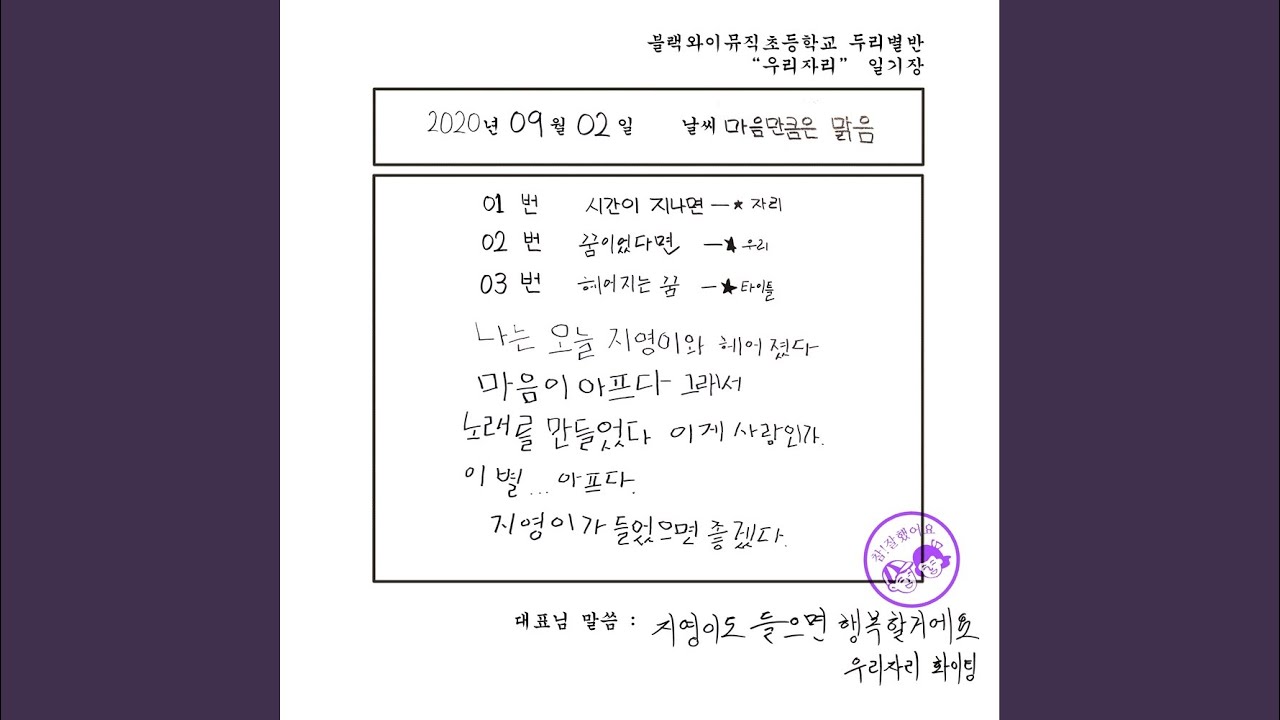 블랙와이뮤직초등학교 두리별반
“우리자리” 일기장
2020년 09월 02일 날씨 마음만큼은 맑음
01 번 시간이 지나면 —★ 자리
02 번 꿈이었다면 —★ 우리
03 번 헤어지는 꿈 —★ 타이틀
나는 오늘 지영이와 헤어졌다
마음이 아프다 그래서
노래를 만들었다 이게 사랑인가.
이별... 아프다.
지영이가 들었으면 좋겠다.
참!잘했어요
대표님 말씀 : 지영이도 들으면 행복할거에요
우리자리 화이팅